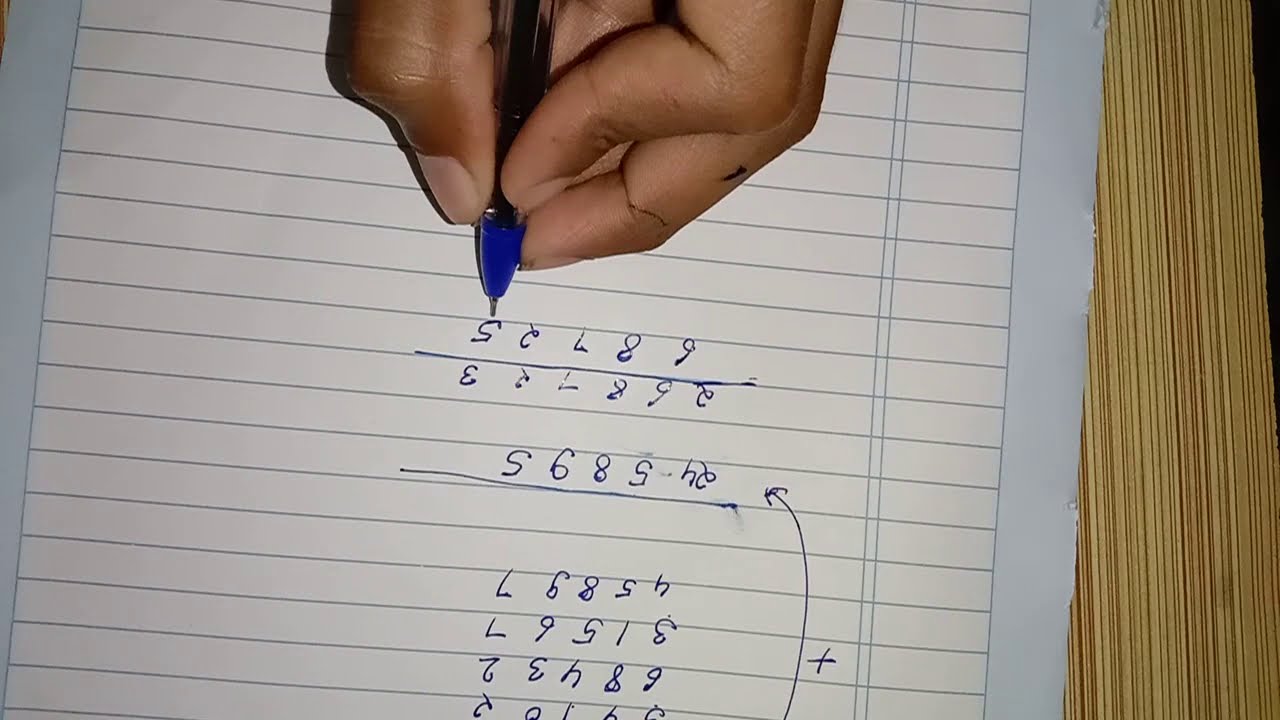 5 4 1 0 2
6 8 4 3 2
+ 3 1 5 6 7
4 5 8 9 7
24 5 8 9 5
2 6 8 7 2 3
6 8 7 2 5